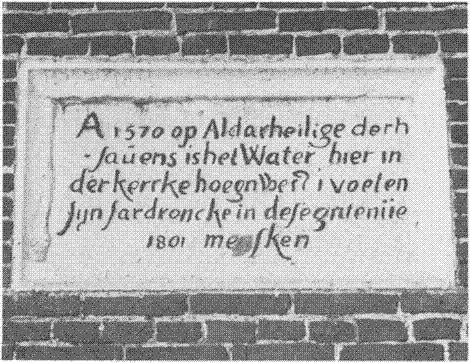 A 1570 op Aldarheilige derh
-saūens is het Water hier in
der kerrke hoegn i voeten
sijn fardroncke in desegntenije
1801 mensken